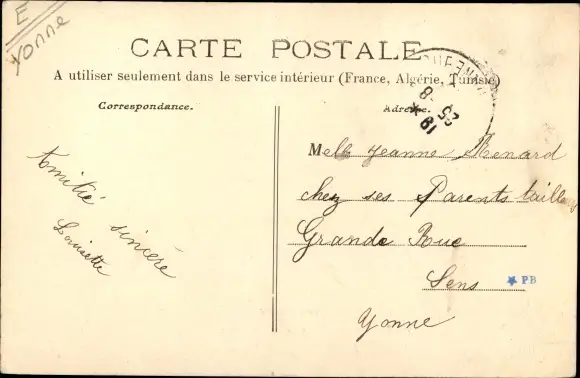 E
Yonne
CARTE POSTALE
A utiliser seulement dans le service intérieur (France, Algérie, Tunisie)
Correspondance.
Adresse.
Amitié sincère
Louisette
Melle Jeanne Renard
chez ses Parents taill
Grande Rue
Sens
Yonne
PB